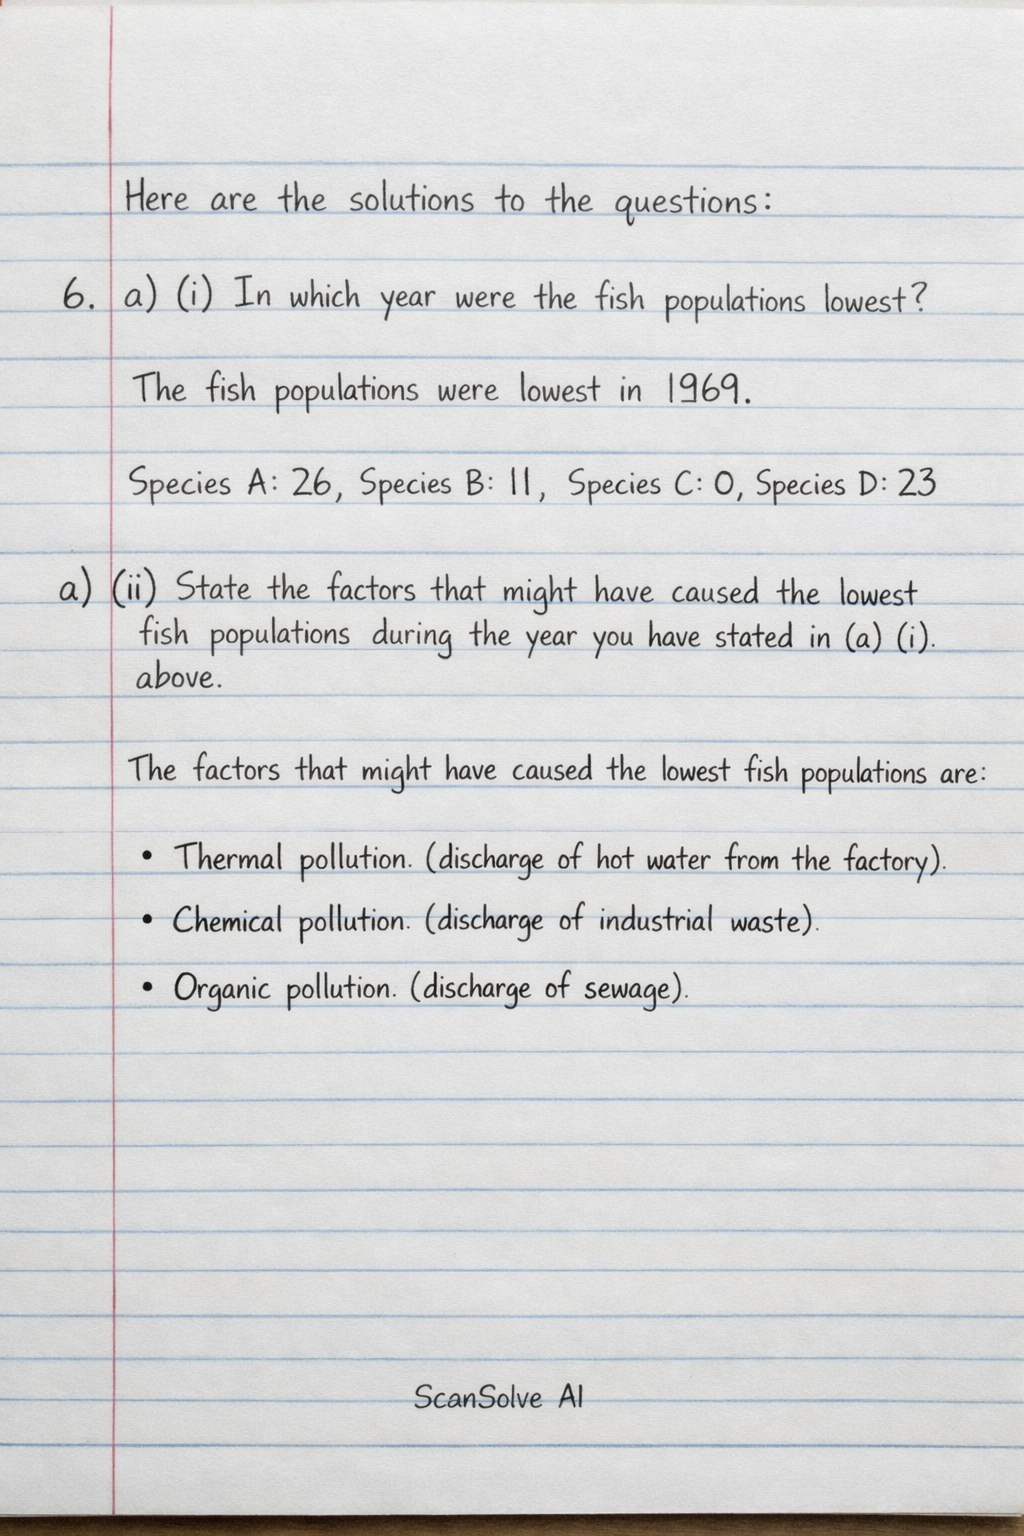 Here are the solutions to the questions:
6. a) (i) In which year were the fish populations lowest?
The fish populations were lowest in 1969.
Species A: 26, Species B: 11, Species C: 0, Species D: 23
a) (ii) State the factors that might have caused the lowest
fish populations during the year you have stated in (a) (i).
above.
The factors that might have caused the lowest fish populations are:
• Thermal pollution. (discharge of hot water from the factory).
• Chemical pollution. (discharge of industrial waste).
• Organic pollution. (discharge of sewage).
ScanSolve AI